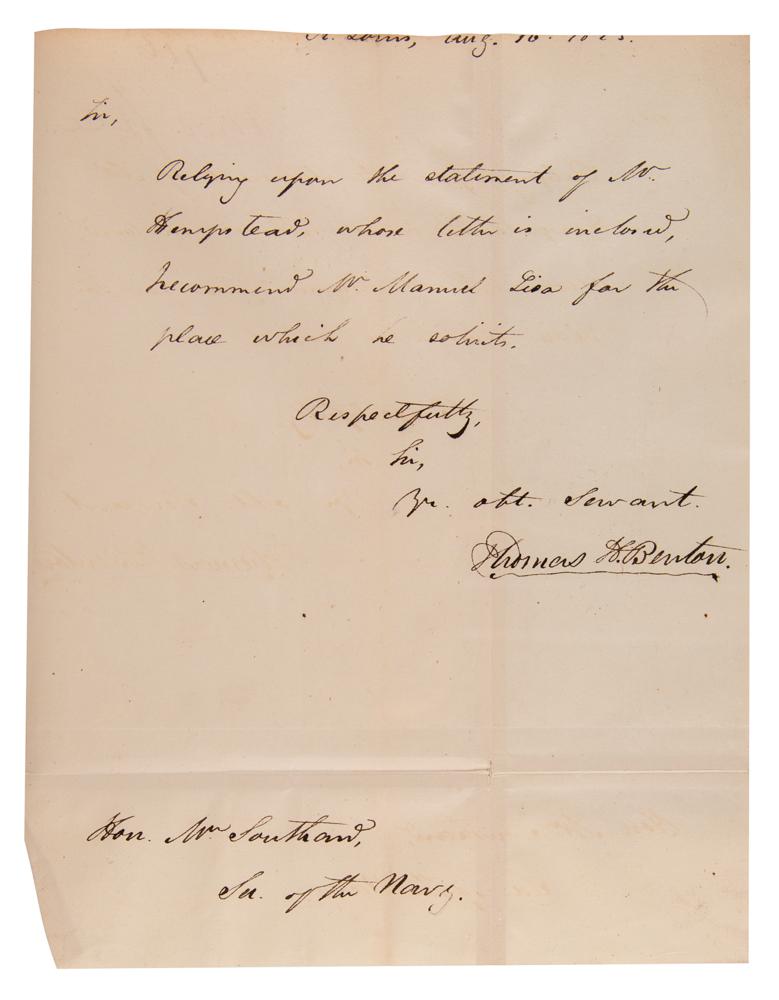 St. Louis, Aug. 16. 1825.
Sir,
Relying upon the statement of Mr.
Hempstead, whose letter is inclosed,
recommend Mr. Manuel Lisa for the
place which he solicits.
Respectfully,
Sir,
Yr. obt. Servant.
Thomas H. Benton.
Hon. Mr Southard,
Sec. of the Navy.